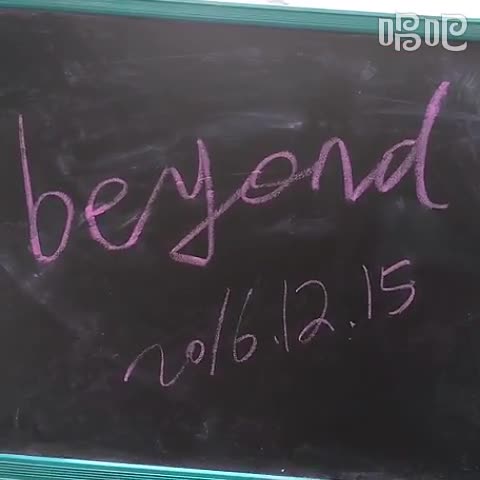 唱吧
beyond
2016.12.15